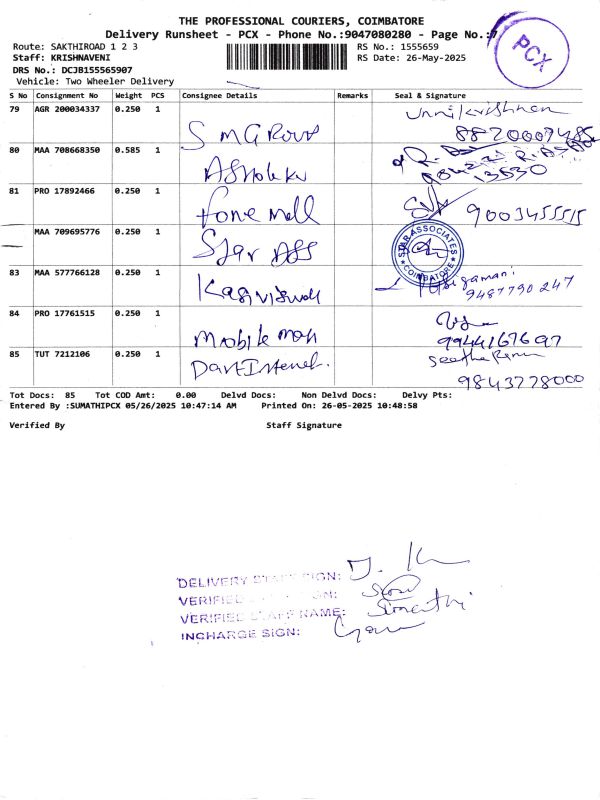 THE PROFESSIONAL COURIERS, COIMBATORE
Delivery Runsheet - PCX - Phone No.:9047080280 - Page No.:7
PCX
Route: SAKTHIROAD 1 2 3
RS No.: 1555659
Staff: KRISHNAVENI
RS Date: 26-May-2025
DRS No.: DCJB155565907
Vehicle: Two Wheeler Delivery
S No Consignment No Weight PCS Consignee Details Remarks Seal & Signature
79 AGR 200034337 0.250 1
Unnikrishnan
80 MAA 708668350 0.585 1
13530
81 PRO 17892466 0.250 1
fone mall
MAA 709695776 0.250 1
Star Ass
STAR ASSOCIATES
COIMBATORE
83 MAA 577766128 0.250 1
9487790247
84 PRO 17761515 0.250 1
Mobile man
9944167697
85 TUT 7212106 0.250 1
9843778000
Tot Docs: 85 Tot COD Amt: 0.00 Delvd Docs: Non Delvd Docs: Delvy Pts:
Entered By :SUMATHIPCX 05/26/2025 10:47:14 AM Printed On: 26-05-2025 10:48:58
Verified By Staff Signature
DELIVERY STAFF SIGN:
VERIFIED STAFF SIGN:
VERIFIED STAFF NAME: Sumathi
INCHARGE SIGN: